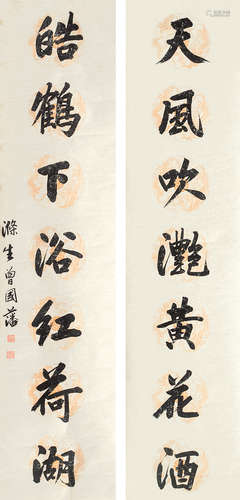 天風吹灧黃花酒
皓鶴下浴紅荷湖
滌生曾國藩